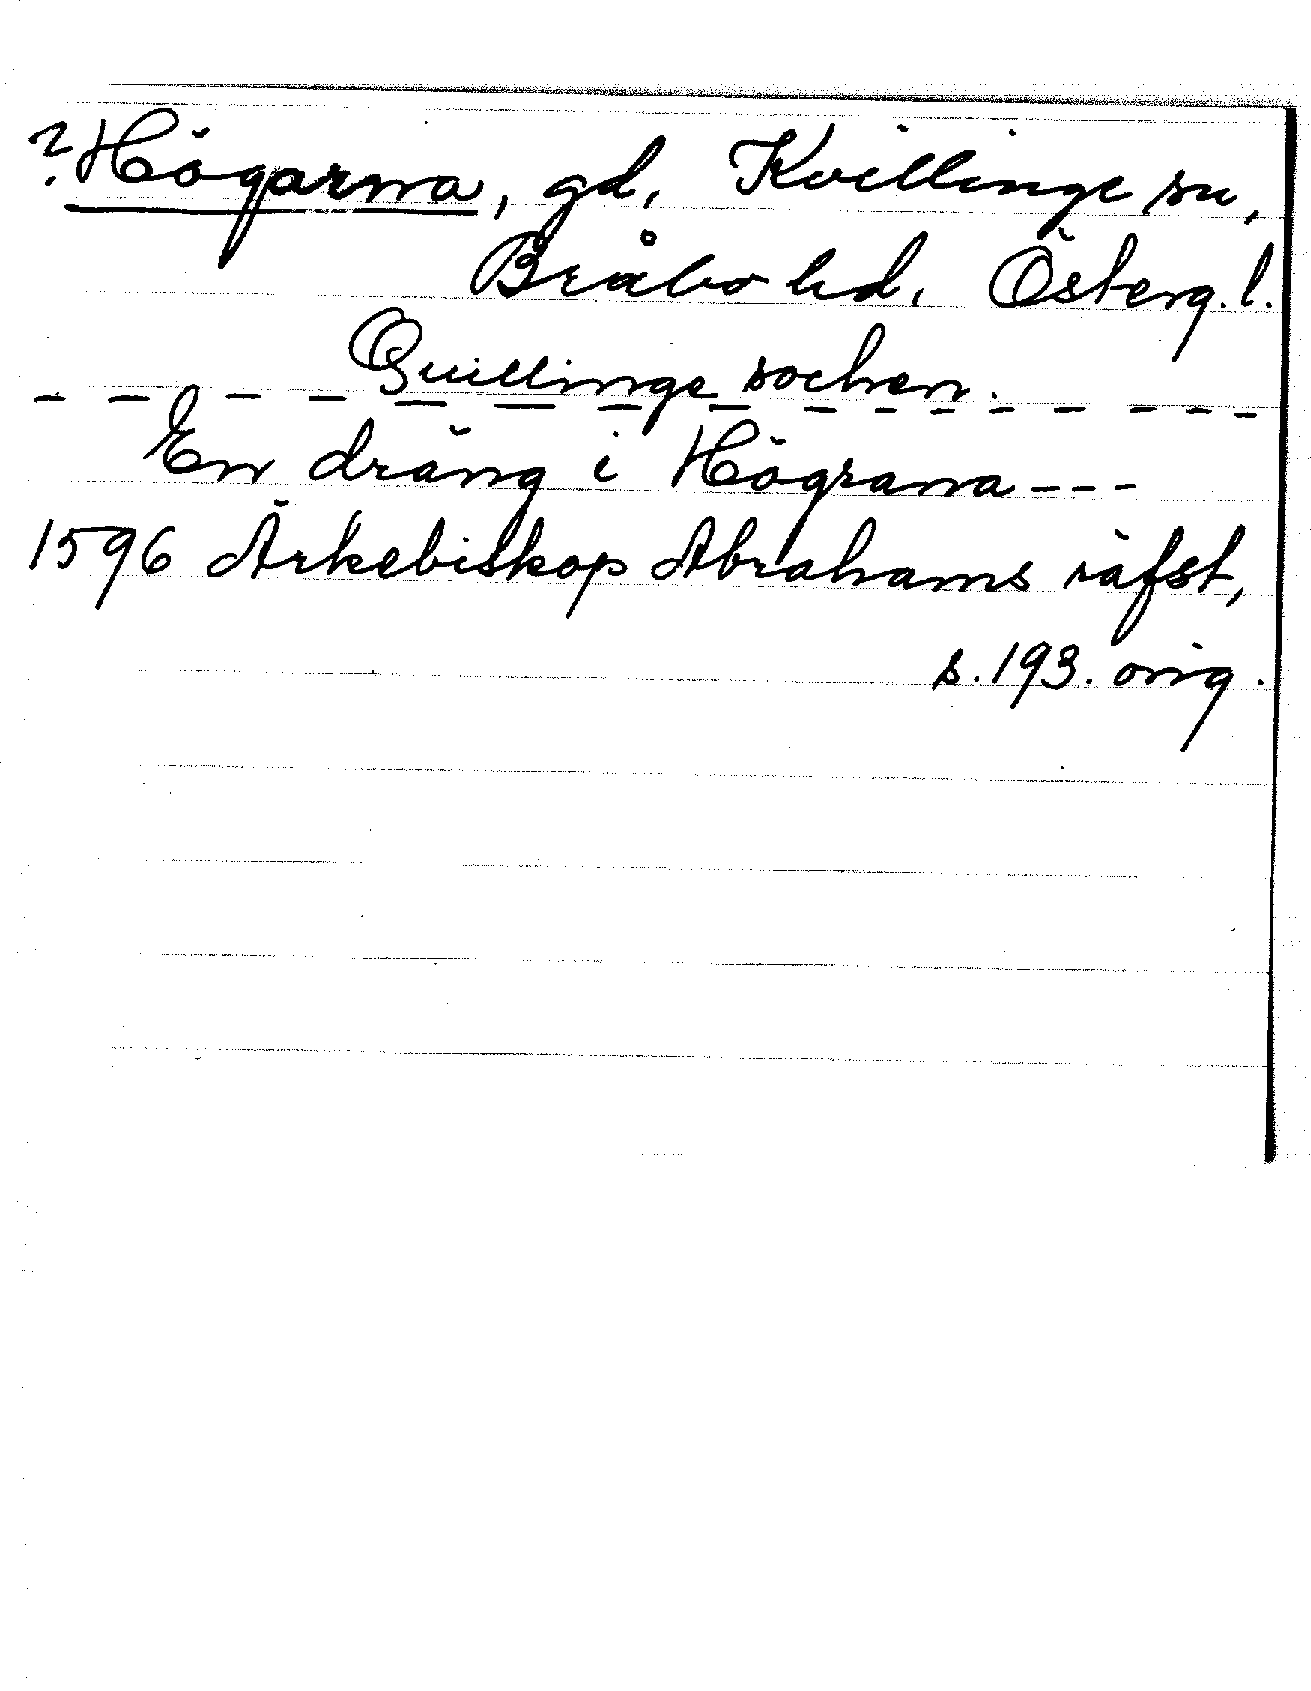 ? Högarna, gd, Kvillinge sn,
Bråbo hd, Österg. l.
Quillinge sochen.
En dräng i Högrana ---
1596 Ärkebiskop Abrahams räfst,
s. 193. orig.